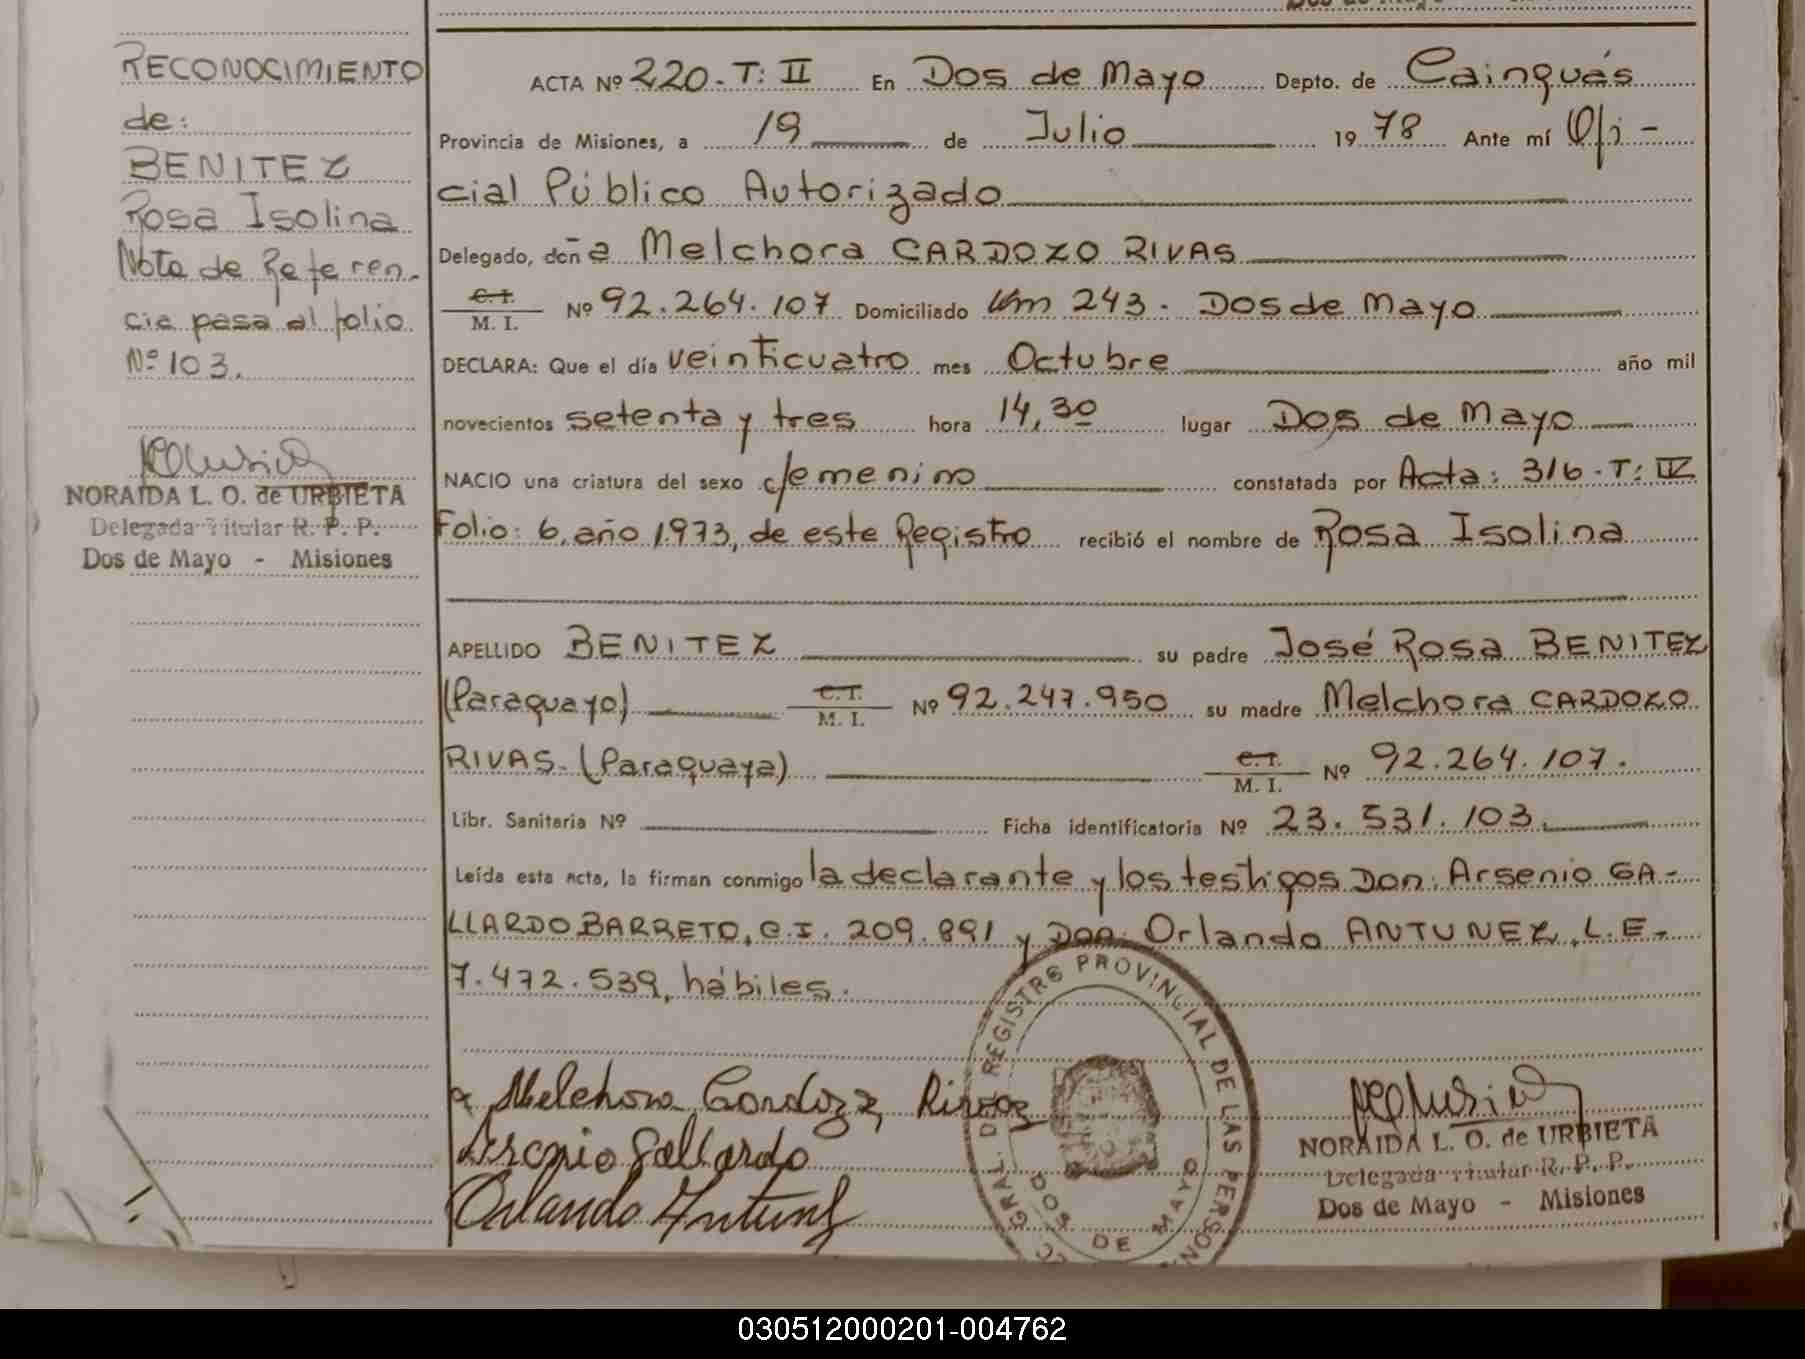 RECONOCIMIENTO
de:
BENITEZ
Rosa Isolina
Nota de Referen-
cia pasa al folio
Nº 103.
NORAIDA L. O. de URBIETA
Delegada Titular R. P. P.
Dos de Mayo - Misiones
ACTA Nº 220-T: II En Dos de Mayo Depto. de Cainguás
Provincia de Misiones, a 19 de Julio 1978 Ante mí Ofi-
cial Público Autorizado
Delegado, doña Melchora CARDOZO RIVAS
C.I. M. I. Nº 92.264.107 Domiciliado Km 243. Dos de Mayo
DECLARA: Que el día veinticuatro mes Octubre año mil
novecientos setenta y tres hora 14,30 lugar Dos de Mayo
NACIO una criatura del sexo femenino constatada por Acta: 316-T: IV
Folio: 6, año 1.973, de este Registro recibió el nombre de Rosa Isolina
APELLIDO BENITEZ su padre José Rosa BENITEZ
(Paraguayo) C.I. M. I. Nº 92.247.950 su madre Melchora CARDOZO
RIVAS-(Paraguaya) C.I. M. I. Nº 92.264.107.
Libr. Sanitaria Nº Ficha identificatoria Nº 23.531.103.
Leída esta acta, la firman conmigo la declarante y los testigos Don: Arsenio GA-
LLARDO BARRETO, C.I. 209.891 y Don: Orlando ANTUNEZ, L.E-
7.472.539, hábiles.
Melchora Cardozz Rivaz
Arsenio Gallardo
Orlando Antunez
GRAL. DE REGISTRO PROVINCIAL DE LAS PERSON
DOS DE MAYO
NORAIDA L. O. de URBIETA
Delegada Titular R. P. P.
Dos de Mayo - Misiones
030512000201-004762